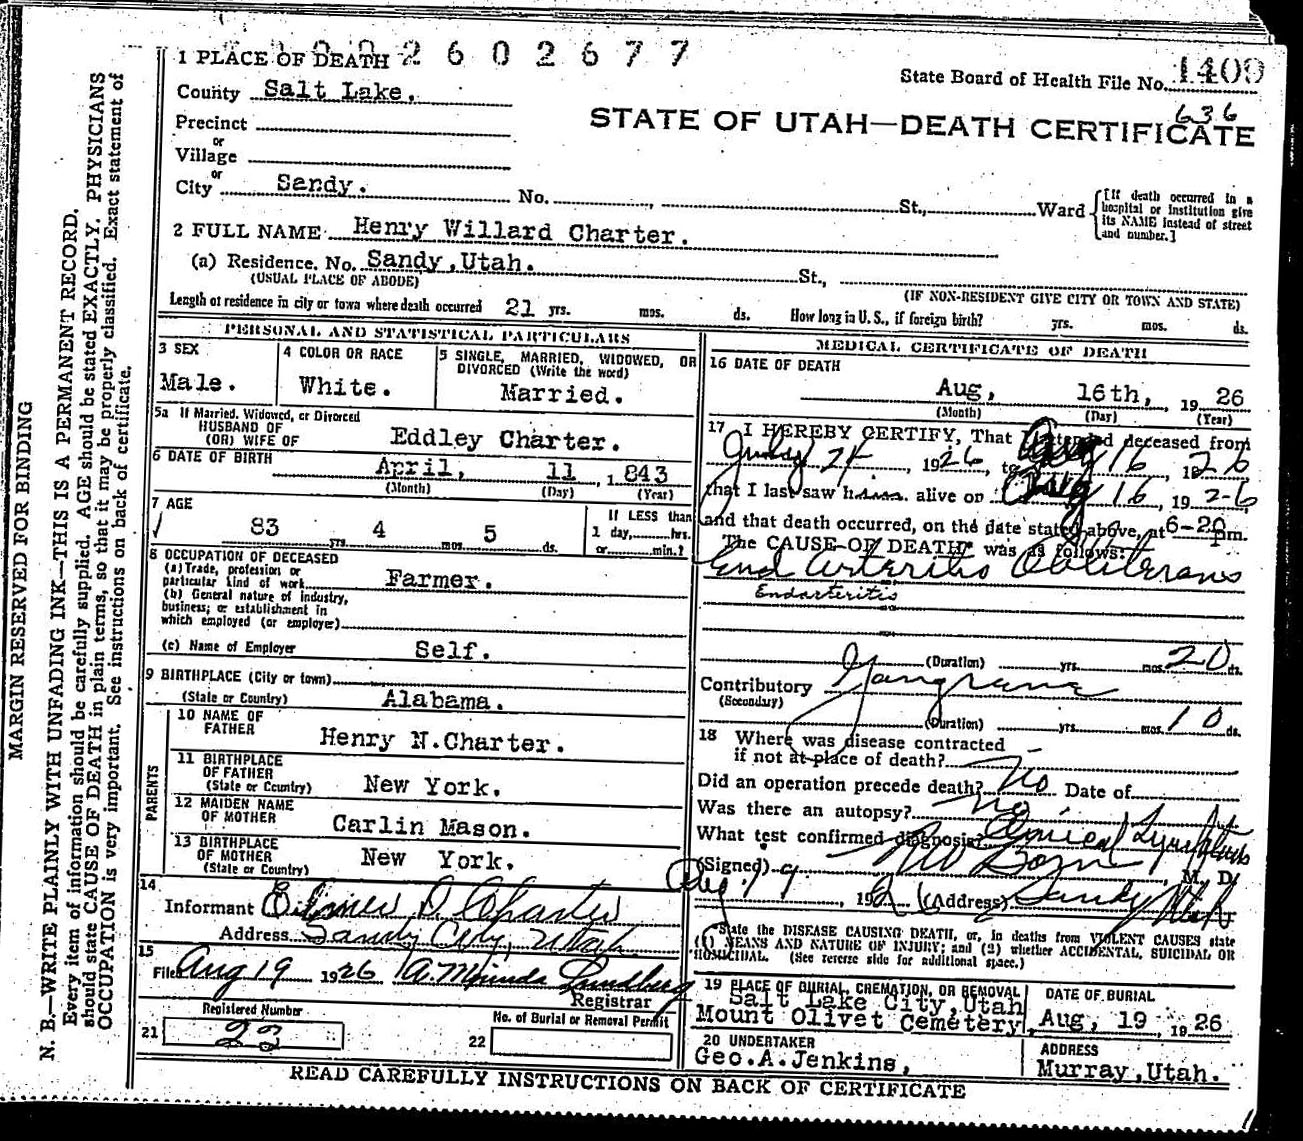 2602677
1 PLACE OF DEATH
State Board of Health File No. 1409
636
County Salt Lake.
STATE OF UTAH—DEATH CERTIFICATE
Precinct
or
Village
or
City Sandy. No. , St., Ward
[If death occurred in a hospital or institution give its NAME instead of street and number.]
2 FULL NAME Henry Willard Charter.
(a) Residence. No. Sandy, Utah. St.,
(USUAL PLACE OF ABODE) (IF NON-RESIDENT GIVE CITY OR TOWN AND STATE)
Length of residence in city or town where death occurred 21 yrs. mos. ds. How long in U.S., if foreign birth? yrs. mos. ds.
PERSONAL AND STATISTICAL PARTICULARS
3 SEX
Male.
4 COLOR OR RACE
White.
5 SINGLE, MARRIED, WIDOWED, OR
DIVORCED (Write the word)
Married.
5a If Married, Widowed, or Divorced
HUSBAND OF
(OR) WIFE OF Eddley Charter.
6 DATE OF BIRTH
April, 11, 1843
(Month) (Day) (Year)
7 AGE
83 yrs. 4 mos. 5 ds.
If LESS than
1 day, hrs.
or min.?
8 OCCUPATION OF DECEASED
(a) Trade, profession or
particular kind of work Farmer.
(b) General nature of industry,
business; or establishment in
which employed (or employer)
(c) Name of Employer Self.
9 BIRTHPLACE (City or town)
(State or Country) Alabama.
PARENTS
10 NAME OF
FATHER Henry N. Charter.
11 BIRTHPLACE
OF FATHER
(State or Country) New York.
12 MAIDEN NAME
OF MOTHER Carlin Mason.
13 BIRTHPLACE
OF MOTHER
(State or Country) New York.
14
Informant Elmer D Charter
Address Sandy City, Utah
15
Filed Aug 19 1926 A. Lundberg
Registrar
Registered Number
21 23
No. of Burial or Removal Permit
22
MEDICAL CERTIFICATE OF DEATH
16 DATE OF DEATH
Aug, 16th, 1926
(Month) (Day) (Year)
17 I HEREBY CERTIFY, That I attended deceased from
July 24, 1926, to Aug 16, 1926
that I last saw him alive on Aug 16, 1926
and that death occurred, on the date stated above, at 6-20 pm.
The CAUSE OF DEATH* was as follows:
End Arteritis Obliterans
Endarteritis
(Duration) yrs. mos. 20 ds.
Contributory Gangrene
(Secondary)
(Duration) yrs. mos. 10 ds.
18 Where was disease contracted
if not at place of death? —
Did an operation precede death? No Date of
Was there an autopsy? No
What test confirmed diagnosis? Clinical Symptoms
(Signed) , M. D.
Aug. 19, 1926 (Address) Sandy Utah
*State the DISEASE CAUSING DEATH, or, in deaths from VIOLENT CAUSES state
(1) MEANS AND NATURE OF INJURY; and (2) whether ACCIDENTAL, SUICIDAL OR
HOMICIDAL. (See reverse side for additional space.)
19 PLACE OF BURIAL, CREMATION, OR REMOVAL
Salt Lake City, Utah
Mount Olivet Cemetery,
DATE OF BURIAL
Aug, 19, 1926
20 UNDERTAKER
Geo. A. Jenkins,
ADDRESS
Murray, Utah.
READ CAREFULLY INSTRUCTIONS ON BACK OF CERTIFICATE
MARGIN RESERVED FOR BINDING
N. B.—WRITE PLAINLY WITH UNFADING INK—THIS IS A PERMANENT RECORD.
Every item of information should be carefully supplied. AGE should be stated EXACTLY. PHYSICIANS
should state CAUSE OF DEATH in plain terms, so that it may be properly classified. Exact statement of
OCCUPATION is very important. See instructions on back of certificate.